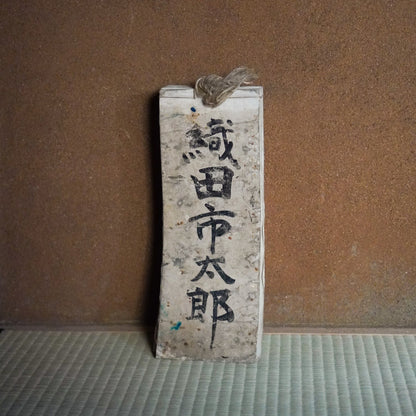 織田市太郎